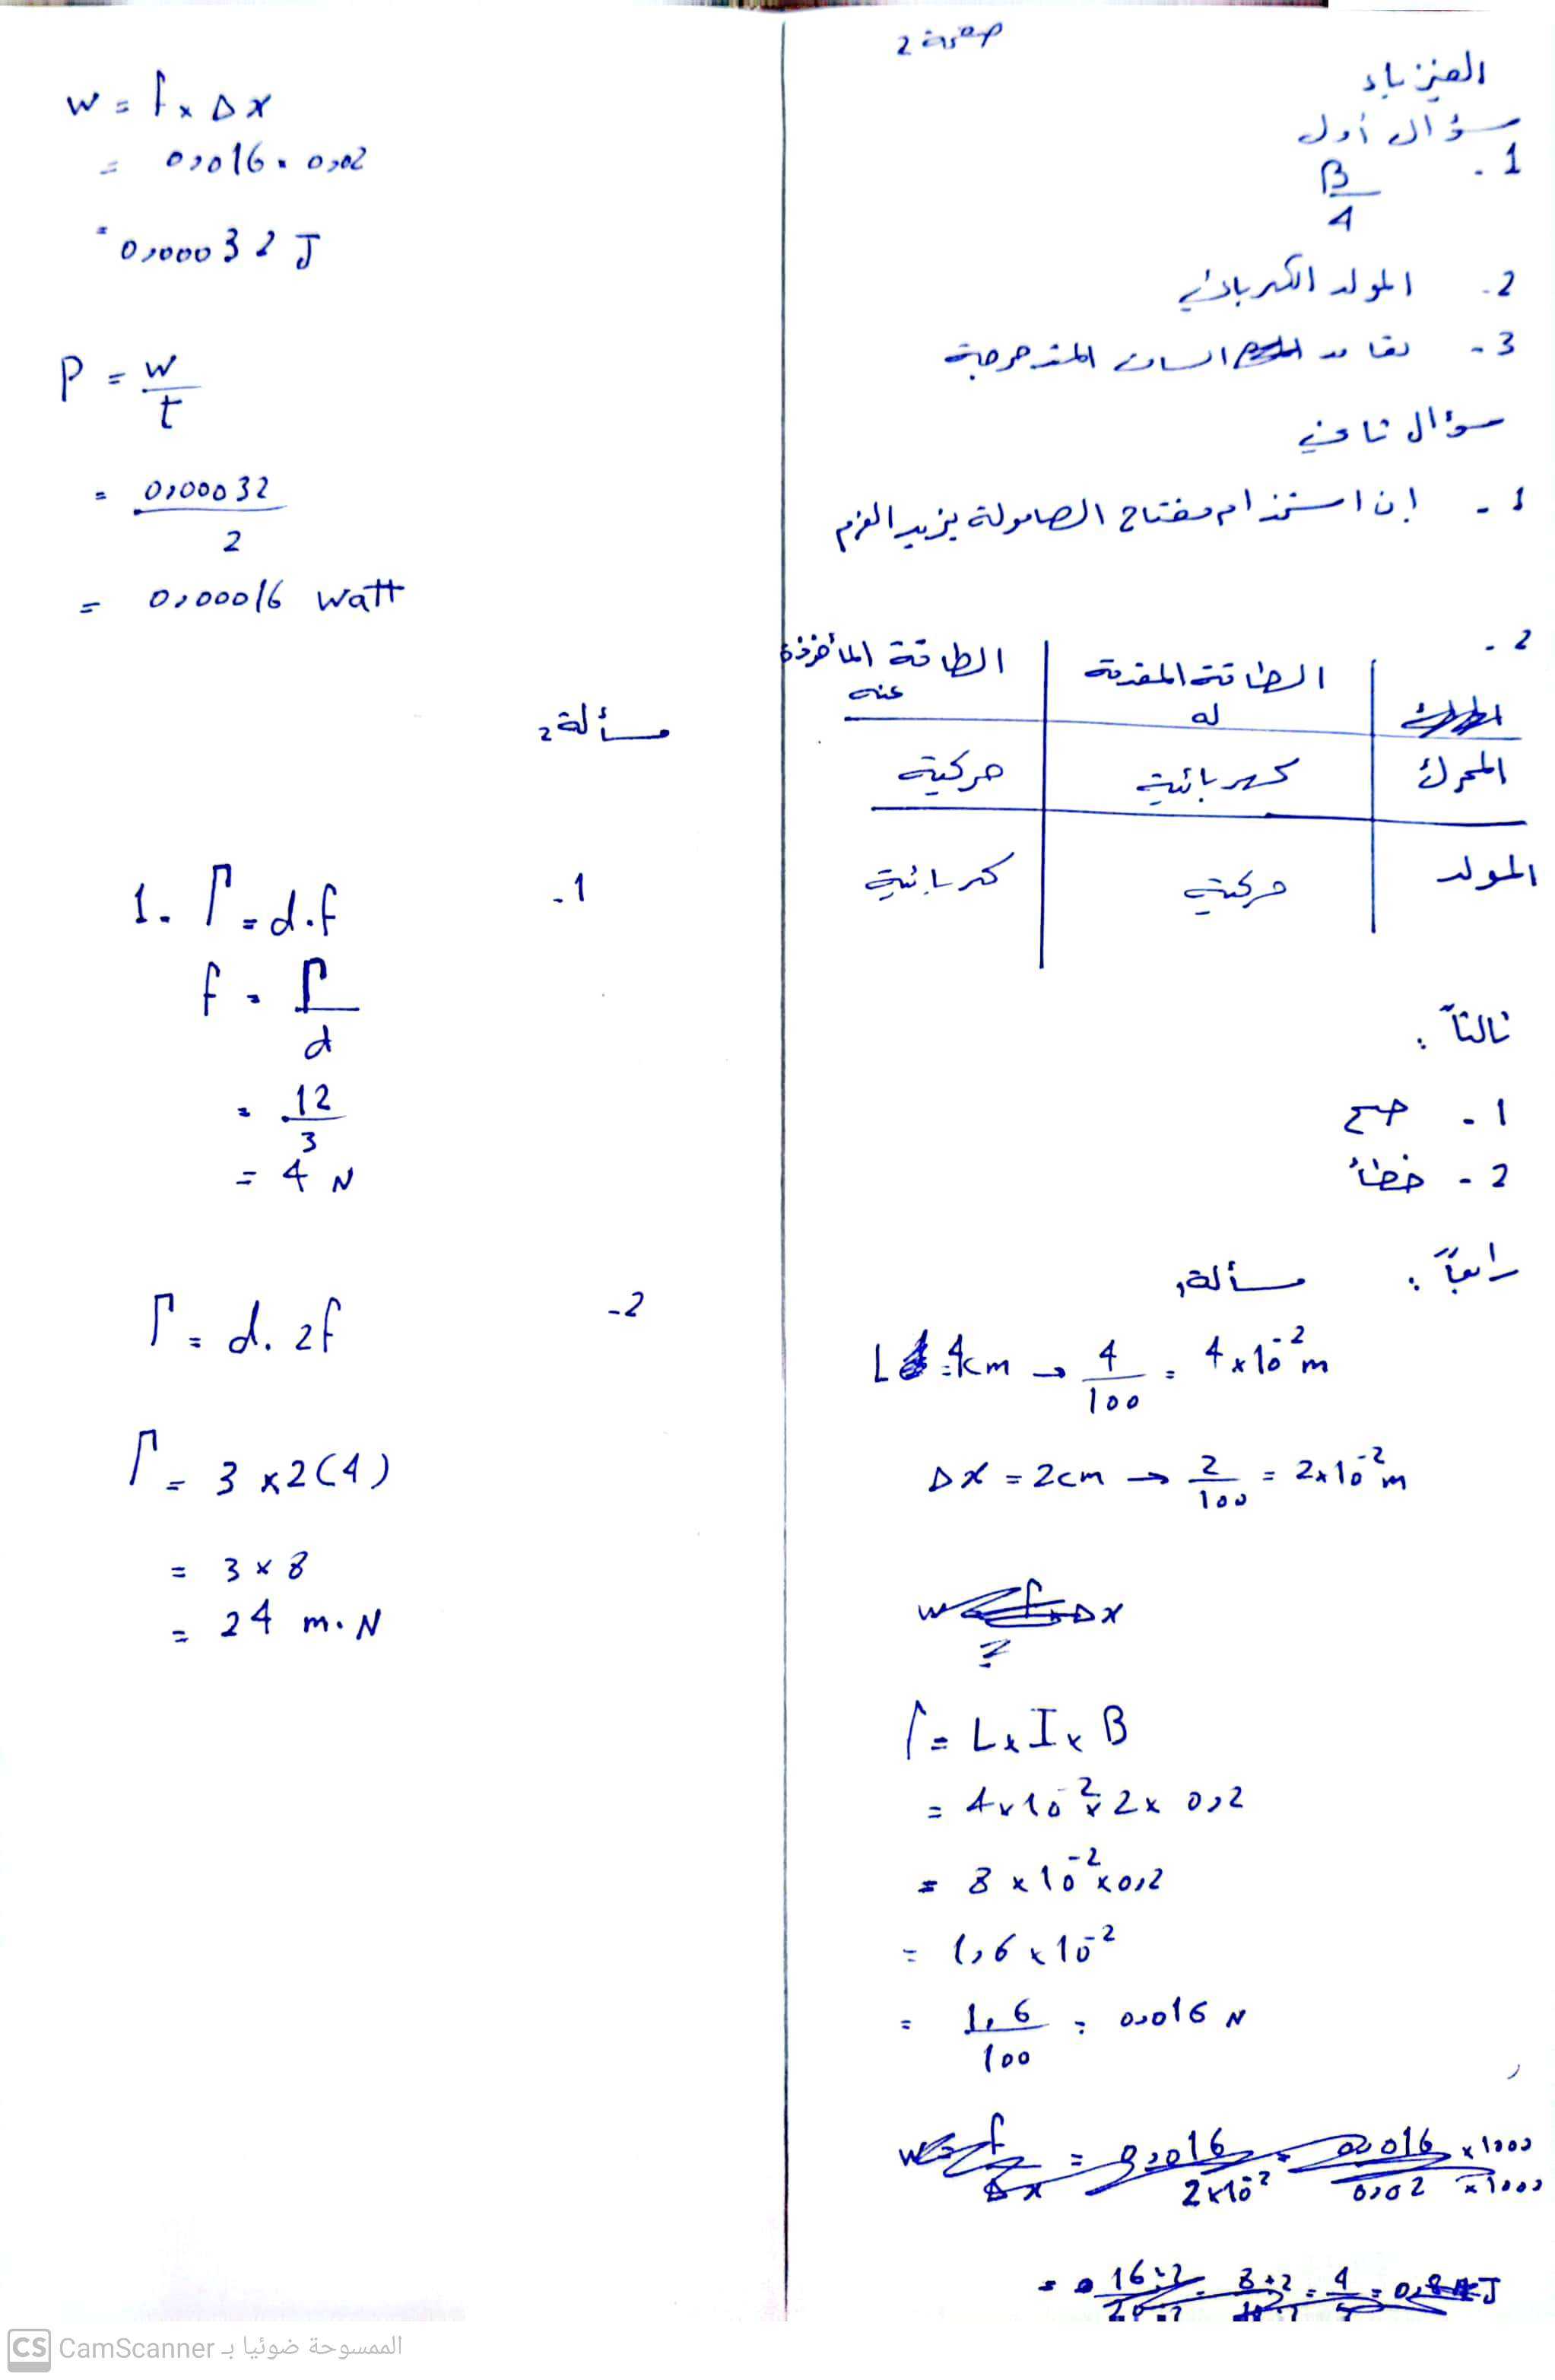 صفحة 2
الفيزياء
سؤال أول
1. B/4
2- المولد الكهربائي
3- السادن المتدحرجة
سؤال ثاني
1- إن استخدام مفتاح الصامولة يزيد العزم
2-
الطاقة المقدمة له | الطاقة المأخوذة عنه
المحرك | كهربائية | حركية
المولد | حركية | كهربائية
ثالثاً:
1- صح
2- خطأ
رابعاً: مسألة 1
L = 4cm → 4/100 = 4×10⁻² m
Δx = 2cm → 2/100 = 2×10⁻² m
f = L × I × B
= 4×10⁻² × 2 × 0,2
= 8 × 10⁻² × 0,2
= 1,6 × 10⁻²
= 1,6/100 = 0,016 N
w = f × Δx
= 0,016 × 0,02
= 0,00032 J
P = w/t
= 0,00032/2
= 0,00016 watt
مسألة 2
1-
1. Γ = d.f
f = Γ/d
= 12/3
= 4 N
2-
Γ = d. 2f
Γ = 3 × 2(4)
= 3 × 8
= 24 m.N
CS CamScanner الممسوحة ضوئيا بـ